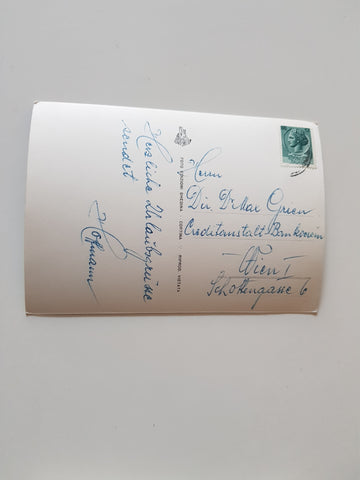 Herzliche Urlaubsgrüsse
sendet
Hofmann
FOTO GHEDINI GHEDINA - CORTINA RIPROD. VIETATA
Herrn
Dir. Dr Max Green
Creditanstalt Bankverein
Wien I
Schottengasse 6